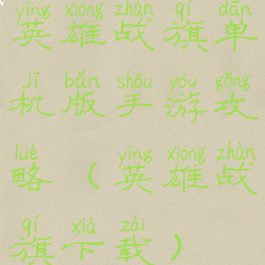 yīng xióng zhàn qí dān
英雄战旗单
jī bǎn shǒu yóu gōng
机版手游攻
lüè yīng xióng zhàn
略（英雄战
qí xià zài
旗下载）